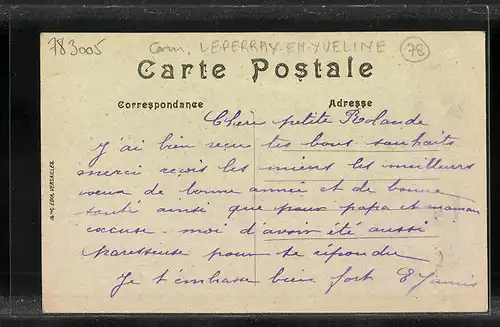 783005 Com. LEPERRAY-EN-YVELINE 78
Carte Postale
Correspondance Adresse
Chère petite Rolande
J'ai bien reçu tes bons souhaits
merci reçois les miens les meilleurs
vœux de bonne année et de bonne
santé ainsi que pour papa et maman
excuse-moi d'avoir été aussi
paresseuse pour te répondre
Je t'embrasse bien fort
EDIA, VERSAILLES